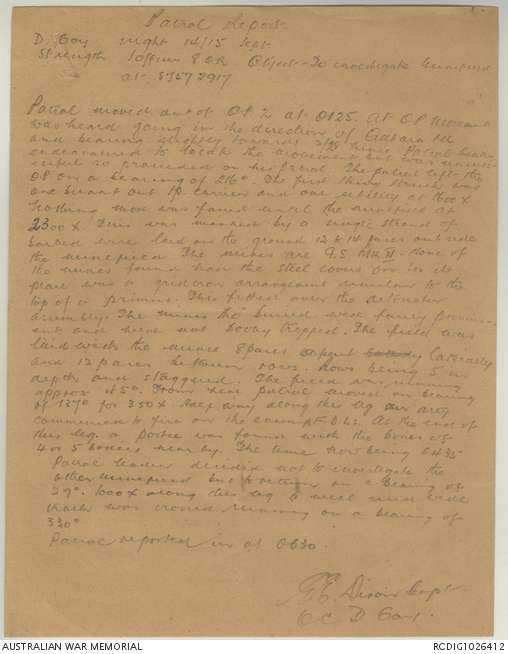 Patrol Report
D Coy night 14/15 Sept
Strength 1 officer 8 OR Object - To investigate minefield
at 87572917
Patrol moved out of OP Z at 0125. At OP movement
was heard going in the direction of
and bearing slightly towards lines. Patrol leader
endeavoured to locate the movement but was
so proceeded on his patrol. The patrol left the
OP on a bearing of 216°. The first thing struck was
one burnt out carrier and one at 1600 x
Nothing more was found until the minefield at
2300 x. This was marked by a single strand of
barbed wire laid on the ground 12 to 14 paces out side
the minefield. The mines are G.S. Mk II. None of
the mines found had the steel covers on. in its
place was a grid iron arrangement similar to the
top of a primus. This fitted over the detonator
assembly. The mines tho' buried were fairly
and were not booby trapped. The field was
laid with the mines 8 paces apart laterally
and 12 paces between rows. Rows being 5 in
depth and staggered. The field was running
approx 45°. From here patrol moved on bearing
of 127° for 350 x. Half way along this leg our arty
commenced to fire on the enemy. At the end of
this leg a was found with the bones of
4 or 5 near by. The time now being 0435
Patrol leader decided not to investigate the
other minefield but to return on a bearing of
29°. 1000 x along this leg a well used wide
track was crossed running on a bearing of
330°
Patrol reported in at 0630.
Dixon Capt
O C D Coy.
AUSTRALIAN WAR MEMORIAL
RCDIG1026412